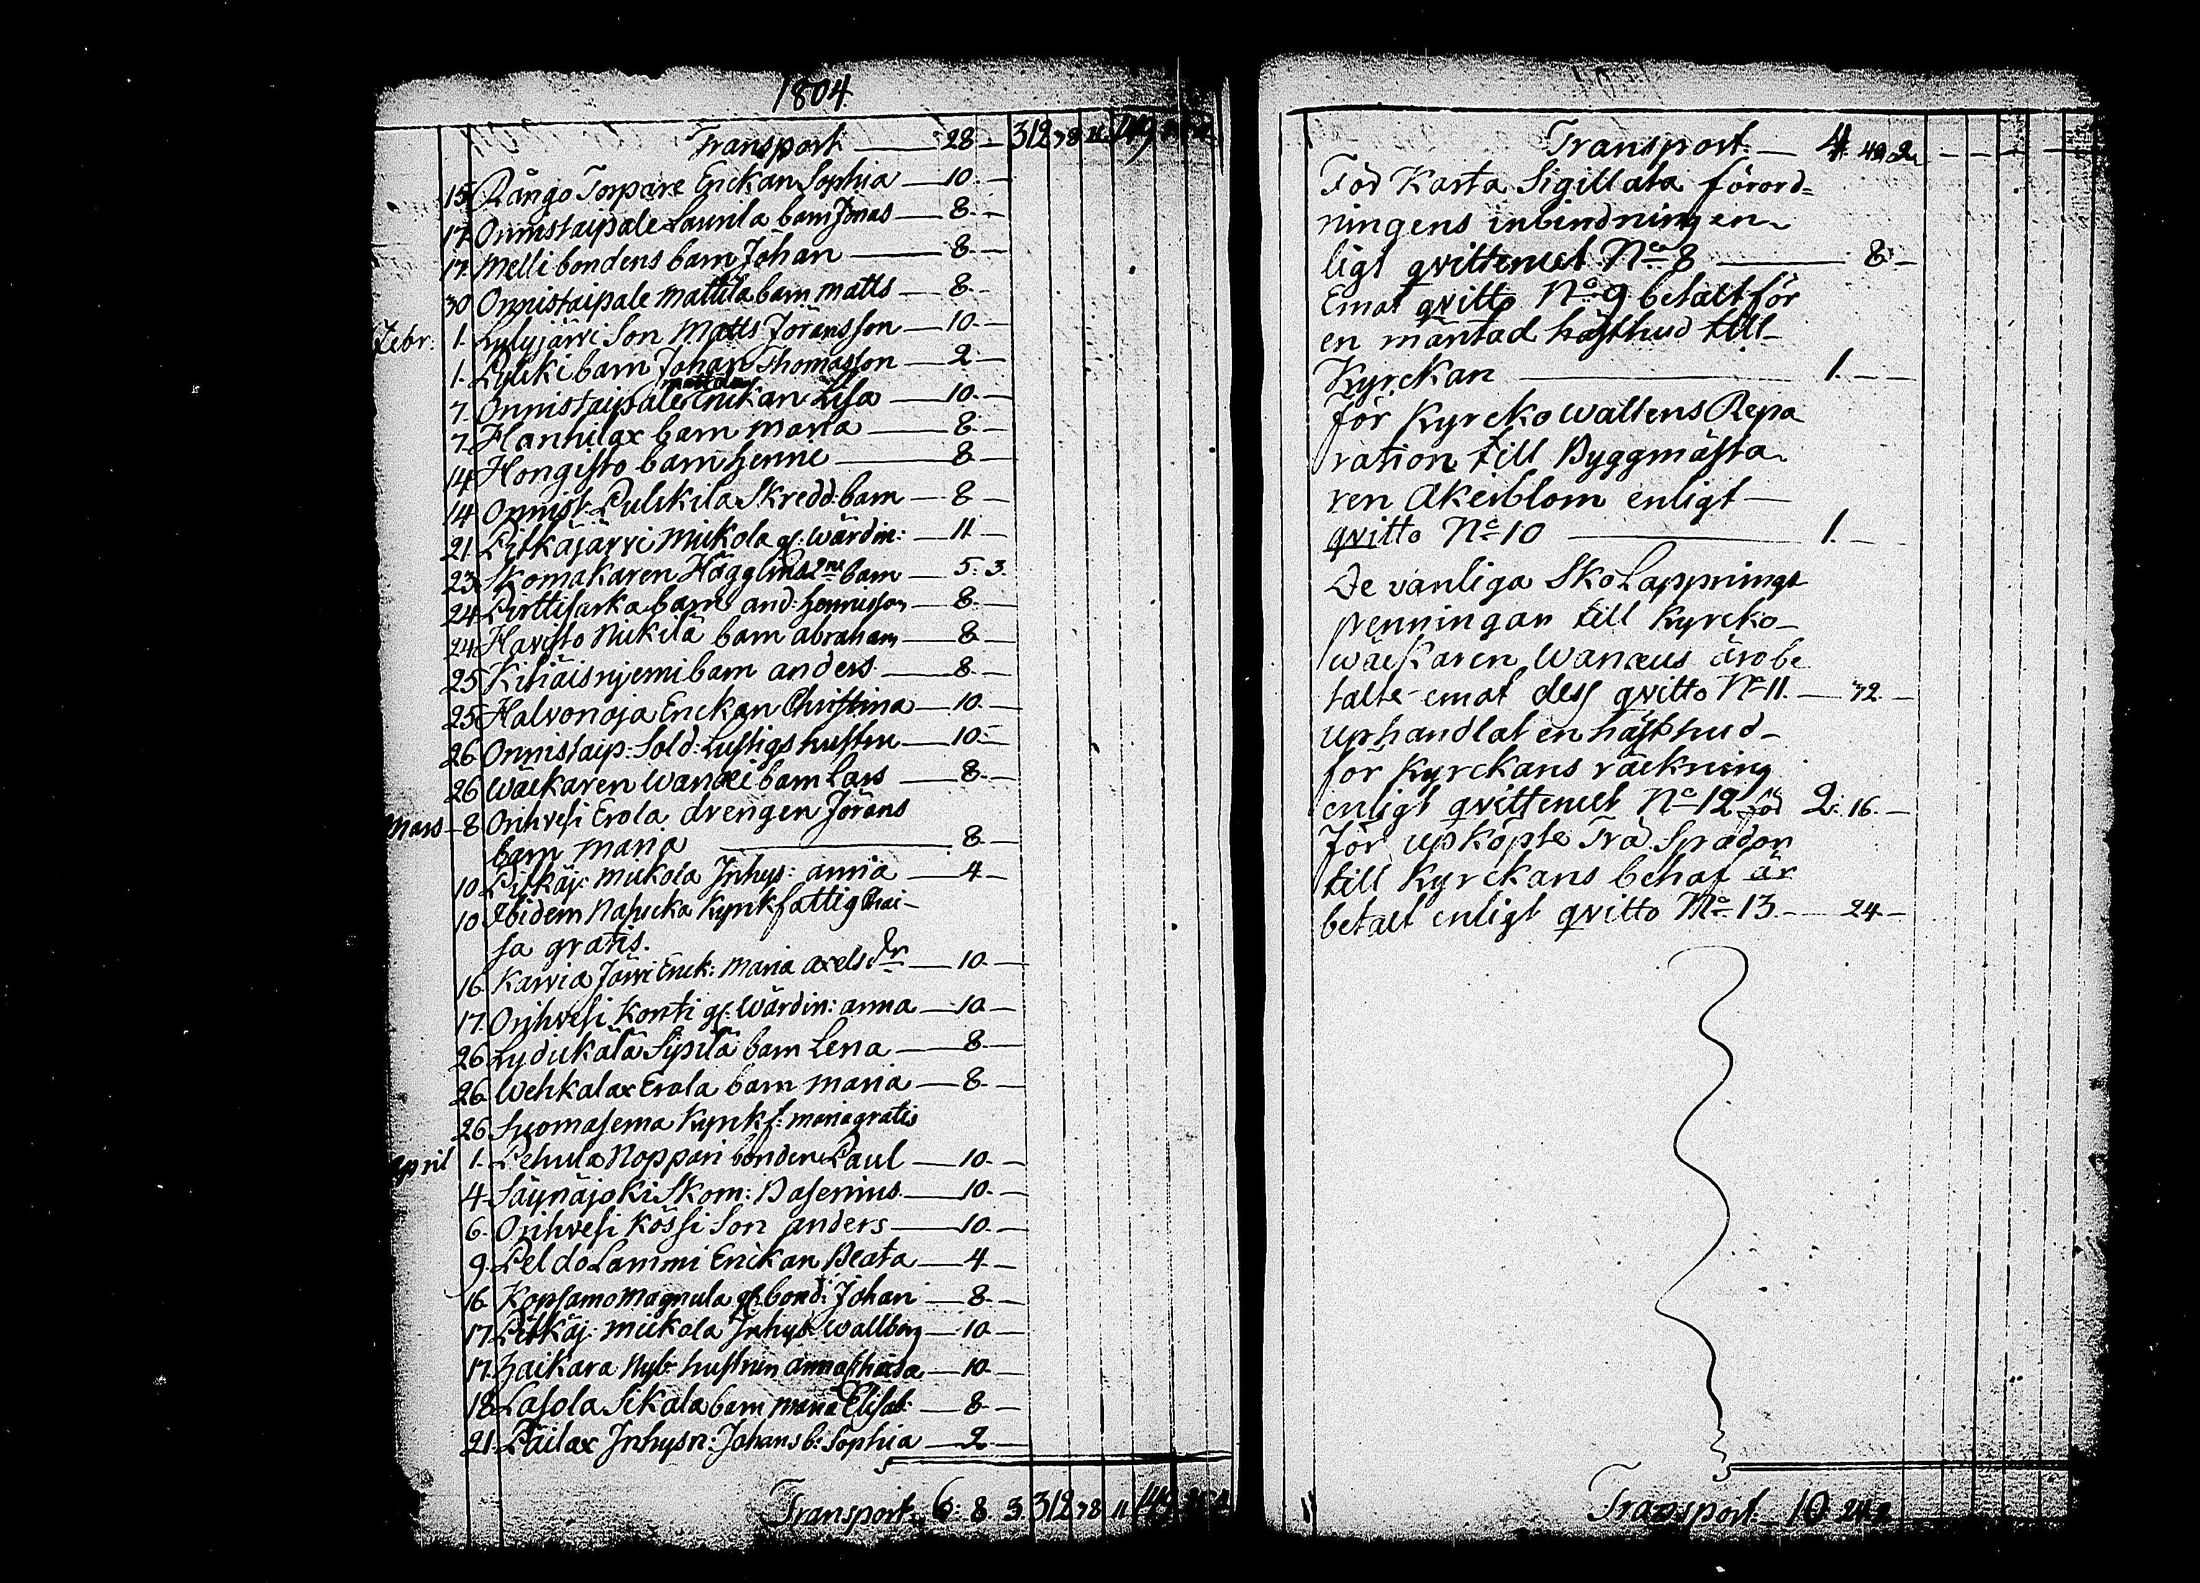 1804
Transport — 28 — 312 78 11 149
15 Rångo Torpare Enckan Sophia — 10 —
17 Onnistaipale Laurila barn Jonas — 8 —
17 Melli bondens barn Johan — 8 —
30 Onnistaipale Mattila barn Matts — 8 —
Febr: 1. Lylyjärvi Son Matts Jöransson — 10 —
1. Pylcki barn Johan Thomasson — 2 —
7. Onnistaipale Enckan Lisa — 10 —
7. Hanhilax barn Maria — 8 —
14 Hongisto barn Henric — 8 —
14 Onnist: Pulskila Skredd: barn — 8 —
21 Pitkäjärvi Mickola gl: Wärdin: — 11 —
23 Skomakaren Hägglins 2ne barn — 5. 3.
24 Purttisarka barn And: Henricsson — 8 —
24 Haristo Nickilä barn Abraham — 8 —
25 barn Anders — 8 —
25 Halvonoja Enckan Christina — 10 —
26 Onnistaip: Sold: Lustigs hustru — 10 —
26 Wäckaren Wanæi barn Lars — 8 —
Mars 8 Orihvesi Erola drengen Jörans
barn Maria — 8 —
10 Pitkäj: Mickola Inhys: Anna — 4 —
10 Ibidem Kyrkfattig Cai-
sa gratis.
16 Karvia Järvi Enck: Maria Axelsdr — 10 —
17. Orihvesi Konti gl: Wärdin: Anna — 10 —
26 Lydickälä Sipilä barn Lena — 8 —
26 Wehkalax Erola barn Maria — 8 —
26 Suomasema Kyrkf: Maria gratis
April 1. Pehula Noppari bonden Paul — 10 —
4 Säynäjoki Skom: Basenius — 10 —
6. Orihvesi Kössi Son Anders — 10 —
9. Peldo Lammi Enckan Beata — 4 —
16 Kopsamo Magnula gl: bond: Johan — 8 —
17 Pitkäj: Mickola Inhys: Wallberg — 10 —
17. Haikara Nyb: hustrun Anna — 10 —
18 Lasola Sikala barn Maria Elisab: — 8 —
21. Pailax Inhysn: Johans b: Sophia — 2 —
Transport. 6: 8. 3. 312 78 11 149
Transport — 4. 42 2
För Karta Sigillata förord=
ningens inbindning en-
ligt qvittencet No 8 — 8 —
Emot qvitto No 9 betalt för
en hästhud till
Kyrckan — 1. — —
för Kyrckowallens Repa
ration till Byggmästa-
ren Åkerblom enligt
qvitto No 10 — 1. —
De vanliga Skolappnings
penningar till Kyrcko-
wäckaren Wanæus äro be
talte emot dess qvitto No 11. — 32 —
Uphandlat en hästhud
för Kyrckans räckning
enligt qvittencet No 12 för 2. 16. —
För upköpte Trä Spadar
till Kyrckans behof är
betalt enligt qvitto No 13. — 24 —
Transport. — 10 24 2